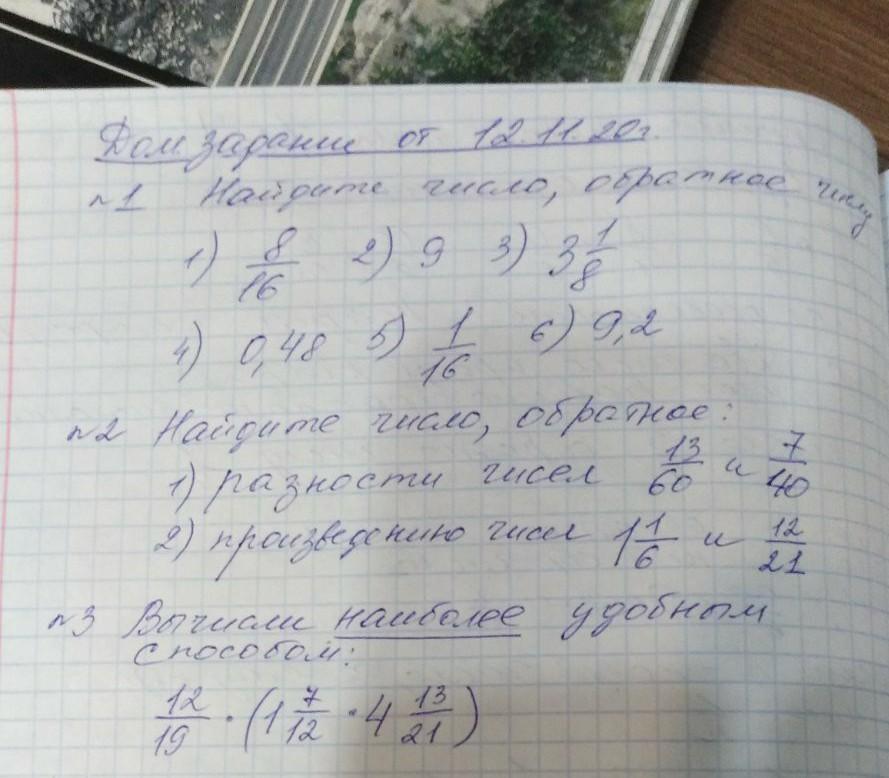 Дом. задание от 12.11.20г.
№1 Найдите число, обратное числу
1) 8/16 2) 9 3) 3 1/8
4) 0,48 5) 1/16 6) 9,2
№2 Найдите число, обратное:
1) разности чисел 13/60 и 7/40
2) произведению чисел 1 1/6 и 12/21
№3 Вычисли наиболее удобным
способом:
12/19 · (1 7/12 · 4 13/21)